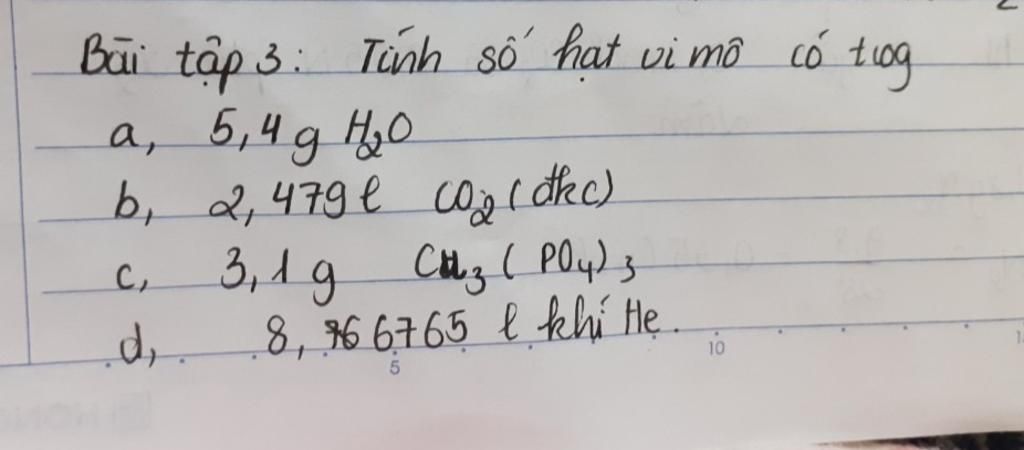 Bài tập 3: Tính số hạt vi mô có trog
a, 5,4g H₂O
b, 2,479 l CO₂ (đkc)
c, 3,1g Cu₃(PO₄)₃
d, 8,766765 l khí He.
5 10